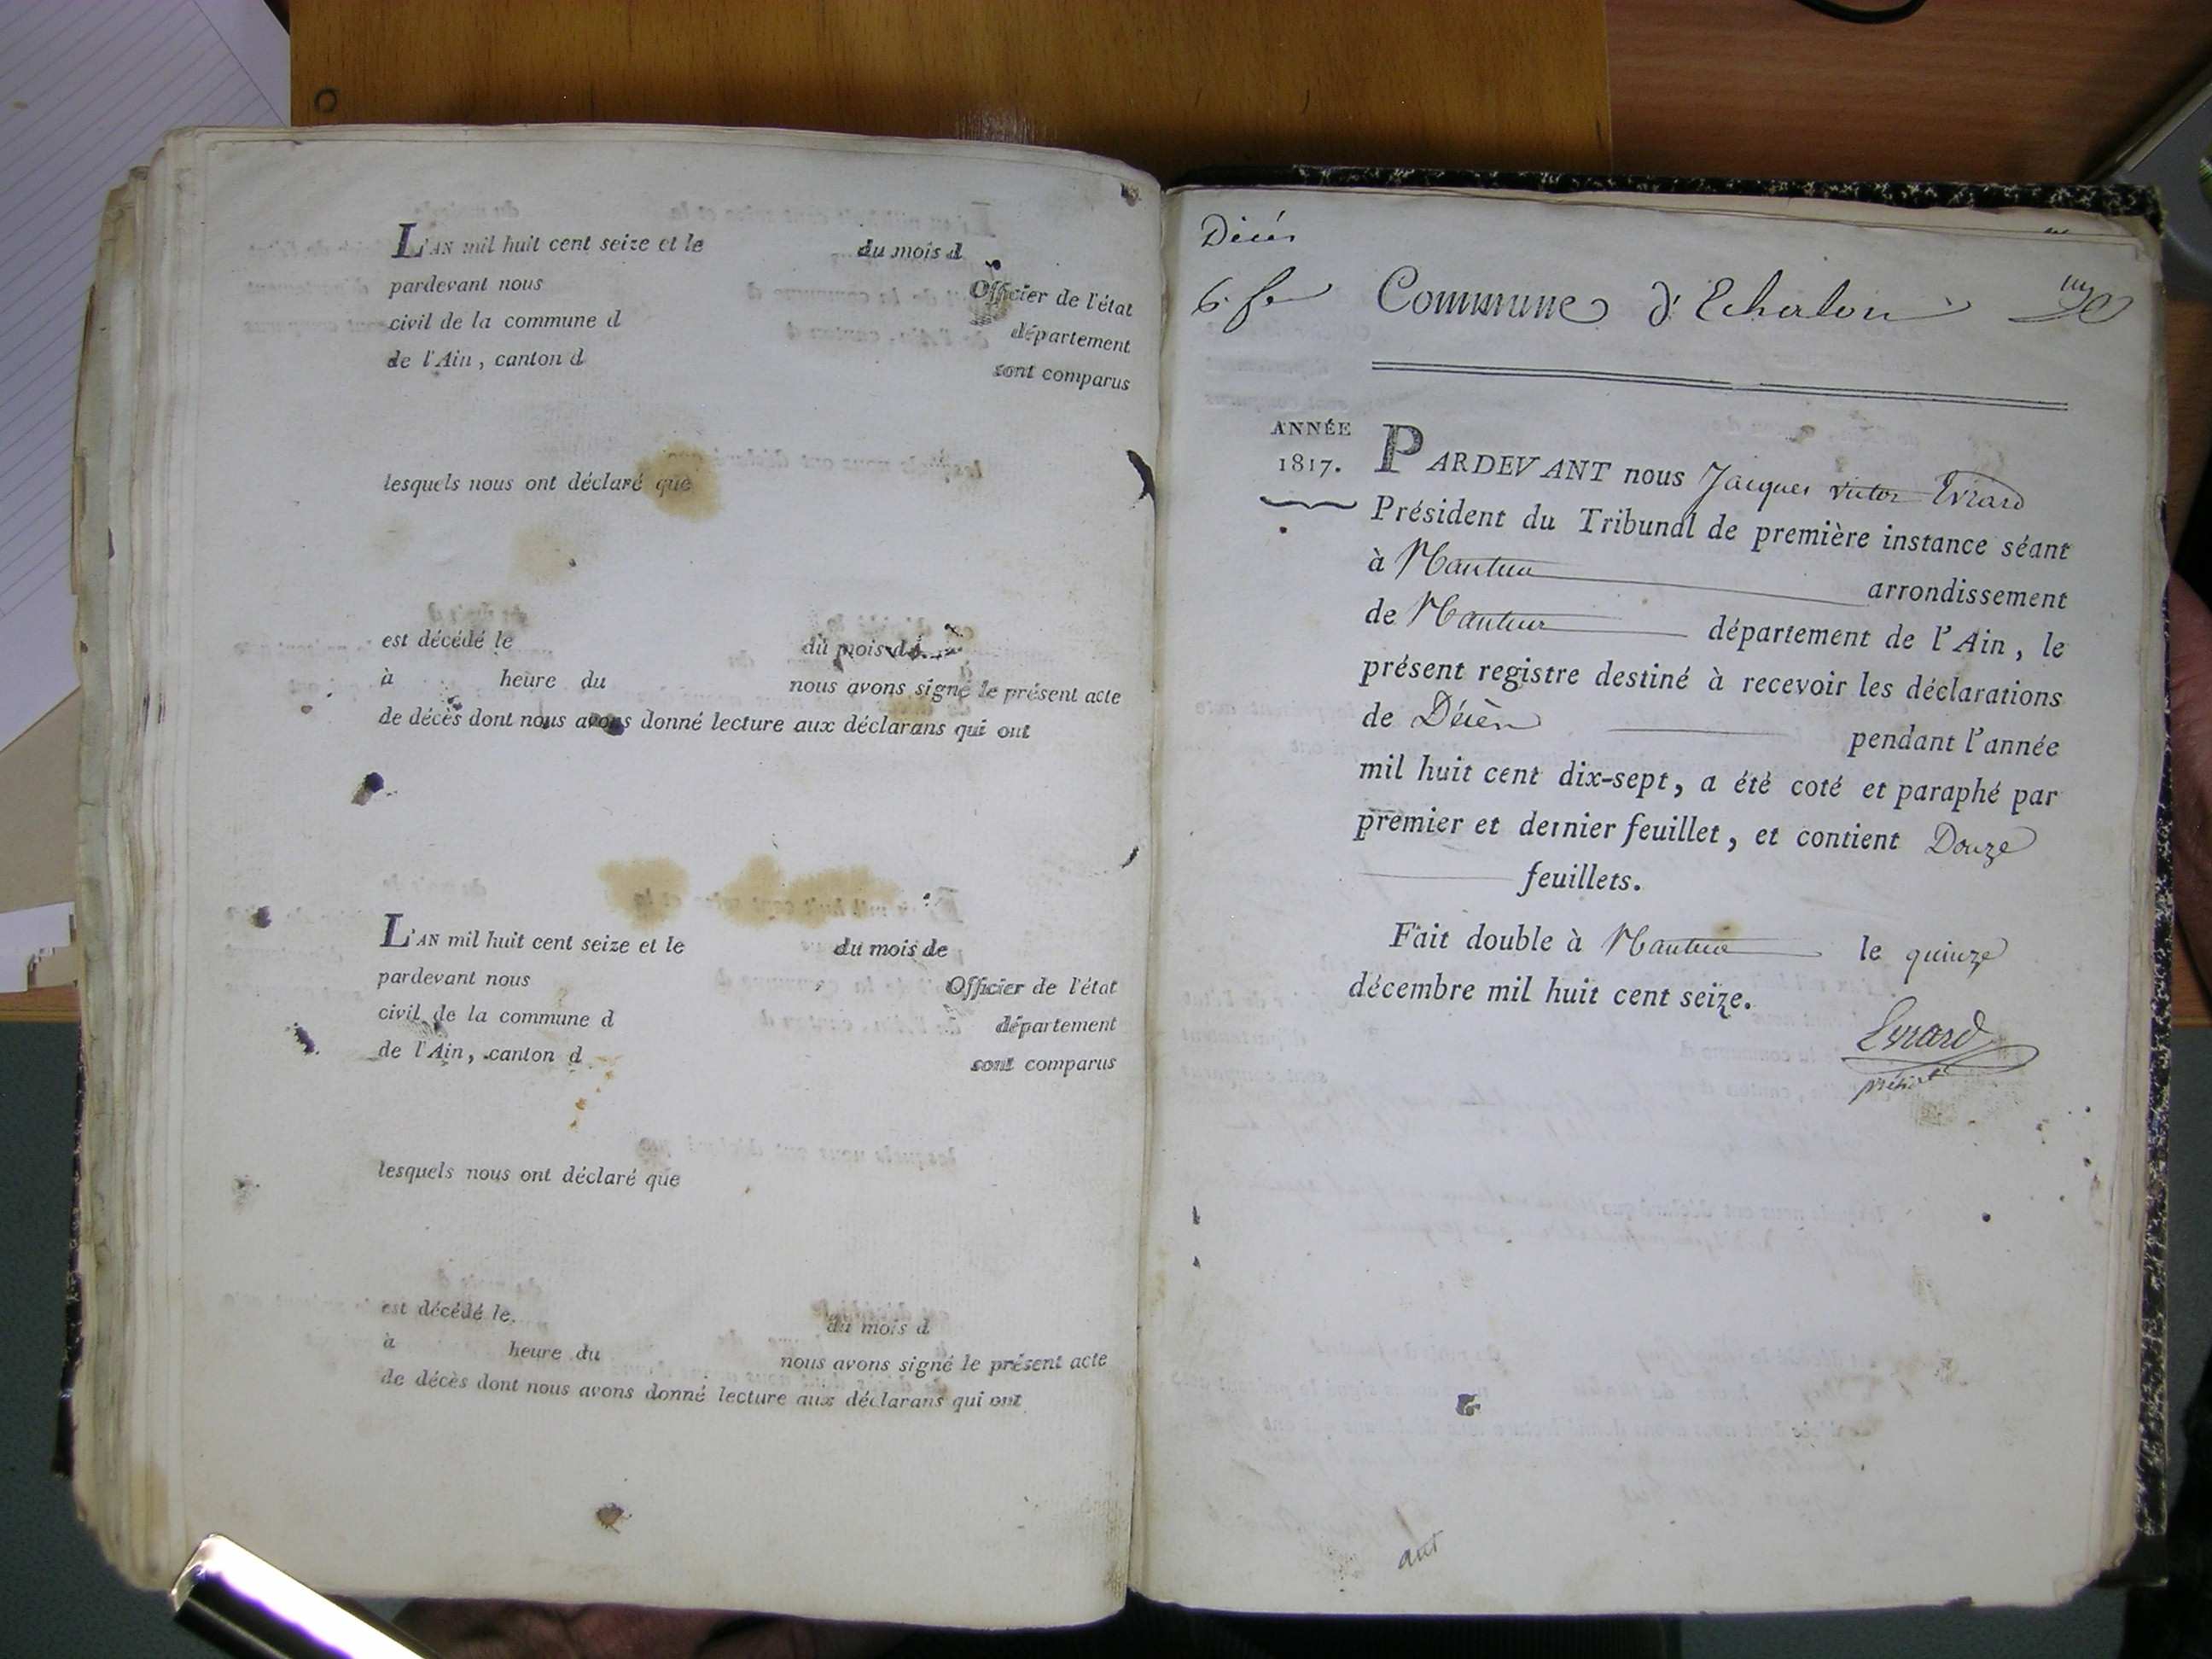 L'AN mil huit cent seize et le du mois d
pardevant nous Officier de l'état
civil de la commune d département
de l'Ain, canton d sont comparus
lesquels nous ont déclaré que
est décédé le du mois d
à heure du nous avons signé le présent acte
de décès dont nous avons donné lecture aux déclarans qui ont
L'AN mil huit cent seize et le du mois de
pardevant nous Officier de l'état
civil de la commune d département
de l'Ain, canton d sont comparus
lesquels nous ont déclaré que
est décédé le du mois d
à heure du nous avons signé le présent acte
de décès dont nous avons donné lecture aux déclarans qui ont
Décés
Commune d'Echalon
ANNÉE
1817.
PARDEVANT nous Jacques victor Evrard
Président du Tribunal de première instance séant
à Nantua arrondissement
de Nantua département de l'Ain, le
présent registre destiné à recevoir les déclarations
de Décès pendant l'année
mil huit cent dix-sept, a été coté et paraphé par
premier et dernier feuillet, et contient Douze
feuillets.
Fait double à Nantua le quinze
décembre mil huit cent seize.
Evrard